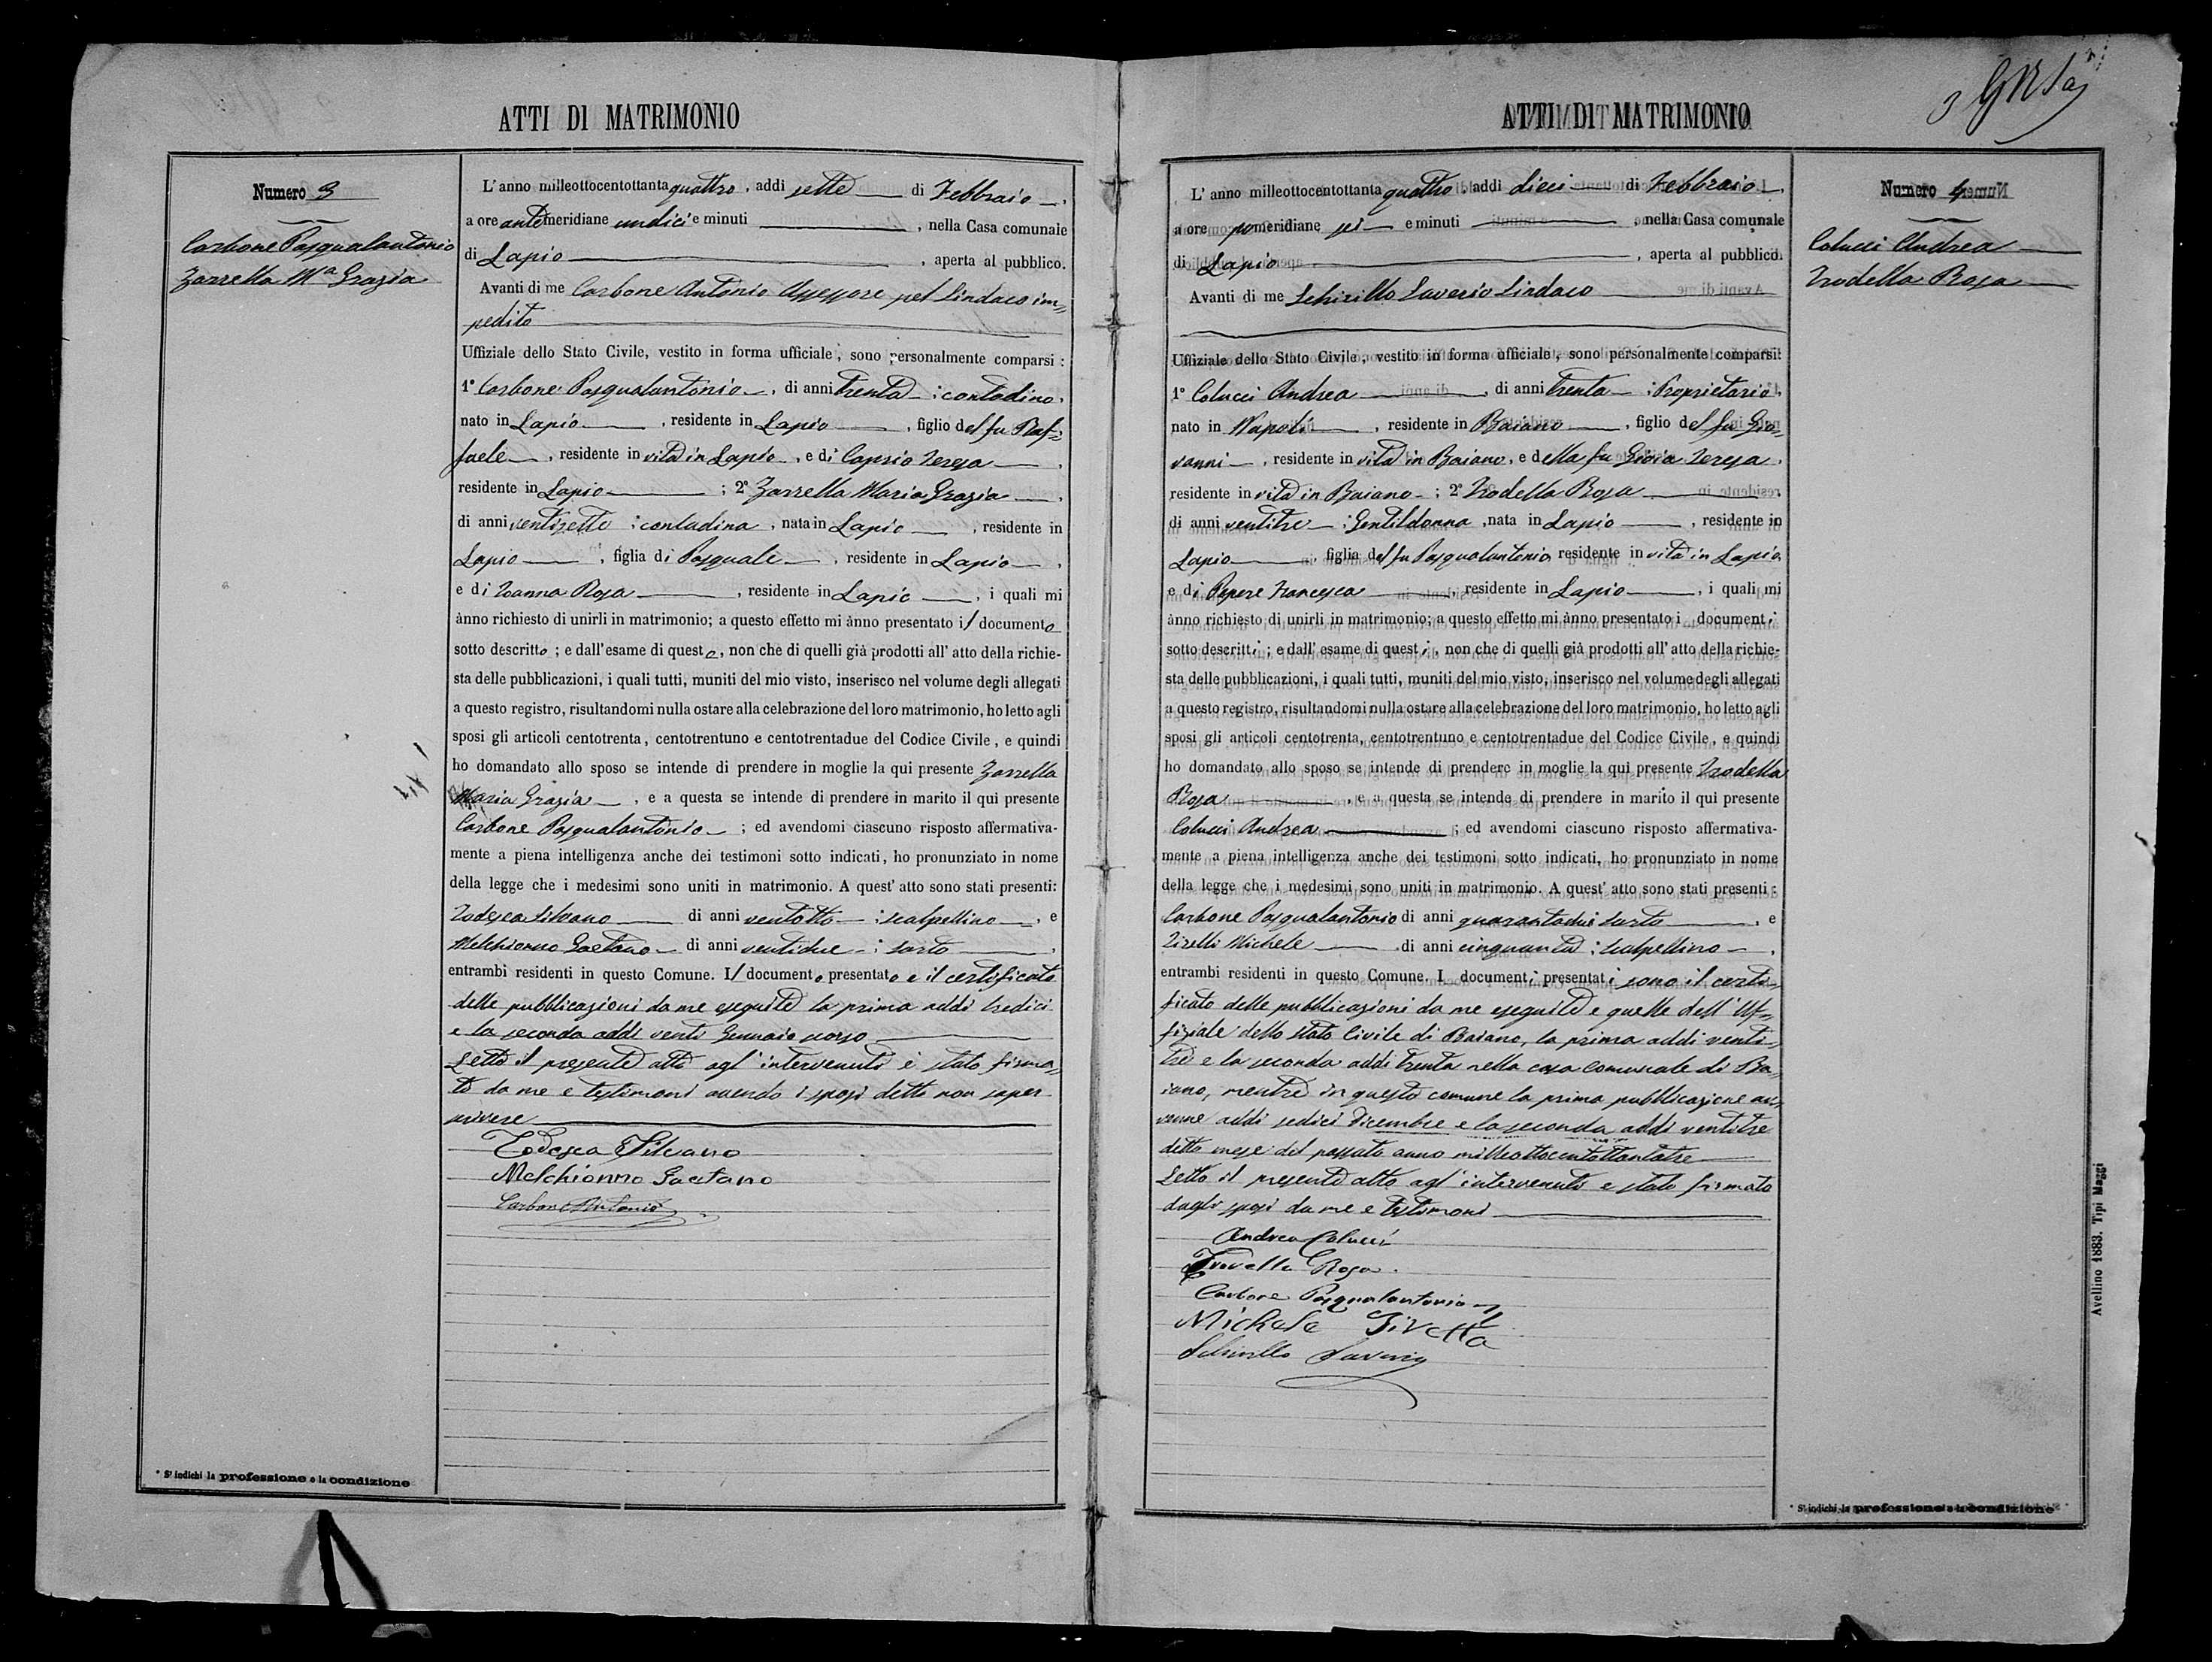 ATTI DI MATRIMONIO
Numero 3
Carbone Pasqualantonio
Zarrella Mª Grazia
L'anno milleottocentottantaquattro, addì sette di Febbraio,
a ore antimeridiane undici e minuti , nella Casa comunale
di Lapio , aperta al pubblico.
Avanti di me Carbone Antonio Assessore pel Sindaco im=
pedito
Uffiziale dello Stato Civile, vestito in forma ufficiale, sono personalmente comparsi:
1° Carbone Pasqualantonio, di anni trenta; contadino,
nato in Lapio, residente in Lapio, figlio del fu Raf=
faele, residente in vita in Lapio, e di Caprio Teresa,
residente in Lapio; 2° Zarrella Maria Grazia,
di anni ventisette; contadina, nata in Lapio, residente in
Lapio, figlia di Pasquale, residente in Lapio,
e di Ioanna Rosa, residente in Lapio, i quali mi
ànno richiesto di unirli in matrimonio; a questo effetto mi ànno presentato il documento
sotto descritto; e dall'esame di questo, non che di quelli già prodotti all'atto della richie-
sta delle pubblicazioni, i quali tutti, muniti del mio visto, inserisco nel volume degli allegati
a questo registro, risultandomi nulla ostare alla celebrazione del loro matrimonio, ho letto agli
sposi gli articoli centotrenta, centotrentuno e centotrentadue del Codice Civile, e quindi
ho domandato allo sposo se intende di prendere in moglie la qui presente Zarrella
Maria Grazia, e a questa se intende di prendere in marito il qui presente
Carbone Pasqualantonio; ed avendomi ciascuno risposto affermativa-
mente a piena intelligenza anche dei testimoni sotto indicati, ho pronunziato in nome
della legge che i medesimi sono uniti in matrimonio. A quest'atto sono stati presenti:
Todesca Silvano di anni ventotto; scalpellino, e
Melchionno Gaetano di anni ventidue; sarto,
entrambi residenti in questo Comune. Il documento presentato è il certificato
delle pubblicazioni da me eseguite la prima addì tredici
e la seconda addì venti Gennaio scorso
Letto il presente atto agl'intervenuti è stato firma=
to da me e testimoni avendo i sposi detto non saper
scrivere
Todesca Silvano
Melchionno Gaetano
Carbone Antonio
* Si indichi la professione o la condizione
ATTI DI MATRIMONIO
3
L'anno milleottocentottantaquattro, addì dieci di Febbraio,
a ore pomeridiane sei e minuti , nella Casa comunale
di Lapio , aperta al pubblico.
Avanti di me Schirillo Saverio Sindaco
Uffiziale dello Stato Civile, vestito in forma ufficiale, sono personalmente comparsi:
1° Colucci Andrea, di anni trenta; Proprietario,
nato in Napoli, residente in Baiano, figlio del fu Gio=
vanni, residente in vita in Baiano, e della fu Gioia Teresa,
residente in vita in Baiano; 2° Trodella Rosa
di anni ventitre; Gentildonna, nata in Lapio, residente in
Lapio, figlia del fu Pasqualantonio residente in vita in Lapio,
e di Pepere Francesca, residente in Lapio, i quali mi
ànno richiesto di unirli in matrimonio; a questo effetto mi ànno presentato i documenti
sotto descritti; e dall'esame di questi, non che di quelli già prodotti all'atto della richie-
sta delle pubblicazioni, i quali tutti, muniti del mio visto, inserisco nel volume degli allegati
a questo registro, risultandomi nulla ostare alla celebrazione del loro matrimonio, ho letto agli
sposi gli articoli centotrenta, centotrentuno e centotrentadue del Codice Civile, e quindi
ho domandato allo sposo se intende di prendere in moglie la qui presente Trodella
Rosa, e a questa se intende di prendere in marito il qui presente
Colucci Andrea; ed avendomi ciascuno risposto affermativa-
mente a piena intelligenza anche dei testimoni sotto indicati, ho pronunziato in nome
della legge che i medesimi sono uniti in matrimonio. A quest'atto sono stati presenti:
Carbone Pasqualantonio di anni quarantadue sarto, e
Tirelli Michele di anni cinquanta; scalpellino,
entrambi residenti in questo Comune. I documenti presentati sono il certi=
ficato delle pubblicazioni da me eseguite e quelle dell'Uf=
fiziale dello Stato Civile di Baiano, la prima addì venti=
tre e la seconda addì trenta nella casa comunale di Ba=
iano, mentre in questo comune la prima pubblicazione av=
venne addì sedici Dicembre e la seconda addì ventitre
detto mese del passato anno milleottocentottantatre
Letto il presente atto agl'intervenuti e stato firmato
dagli sposi da me e testimoni
Andrea Colucci
Trodella Rosa.
Carbone Pasqualantonio
Michele
Schirillo Saverio
Numero 4
Colucci Andrea
Trodella Rosa
* Si indichi la professione o la condizione
Avellino 1883. Tipi Maggi